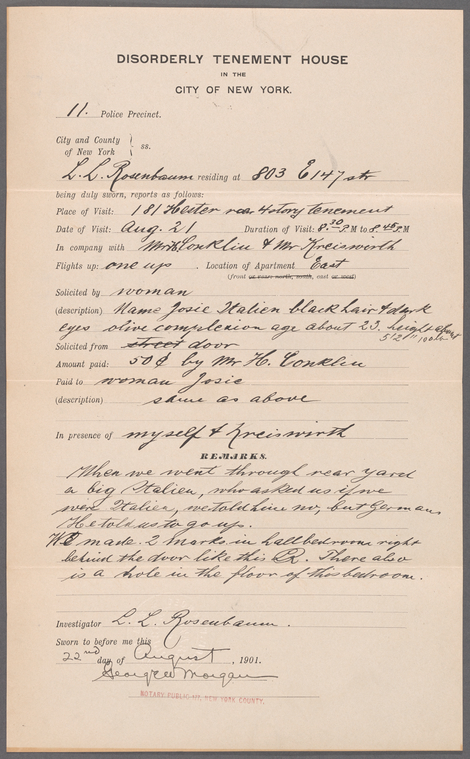 DISORDERLY TENEMENT HOUSE
IN THE
CITY OF NEW YORK.
11. Police Precinct.
City and County
of New York } ss.
L. L. Rosenbaum residing at 803 E 147 str
being duly sworn, reports as follows:
Place of Visit: 181 Hester rear 4 story tenement
Date of Visit: Aug. 21 Duration of Visit: 8.30 P.M to 8.45 P.M
In company with Mr H. Conklin & Mr Kreiswirth
Flights up: one up. Location of Apartment East
(front or rear: north, south, east or west)
Solicited by woman
(description) Name Josie Italien black hair & dark
eyes olive complexion age about 23. height about
5'2" 100 lbs
Solicited from street door
Amount paid: 50¢ by Mr H. Conklin
Paid to woman Josie
(description) same as above
In presence of myself & Kreiswirth
REMARKS.
When we went through rear yard
a big Italien, who asked us if we
were Italien, we told him no, but Germans
He told us to go up.
We made 2 marks in hall bedroom right
behind the door like this R. There also
is a hole in the floor of this bedroom.
Investigator L. L. Rosenbaum.
Sworn to before me this
22nd day of August, 1901.
George W Morgan
NOTARY PUBLIC NEW YORK COUNTY.